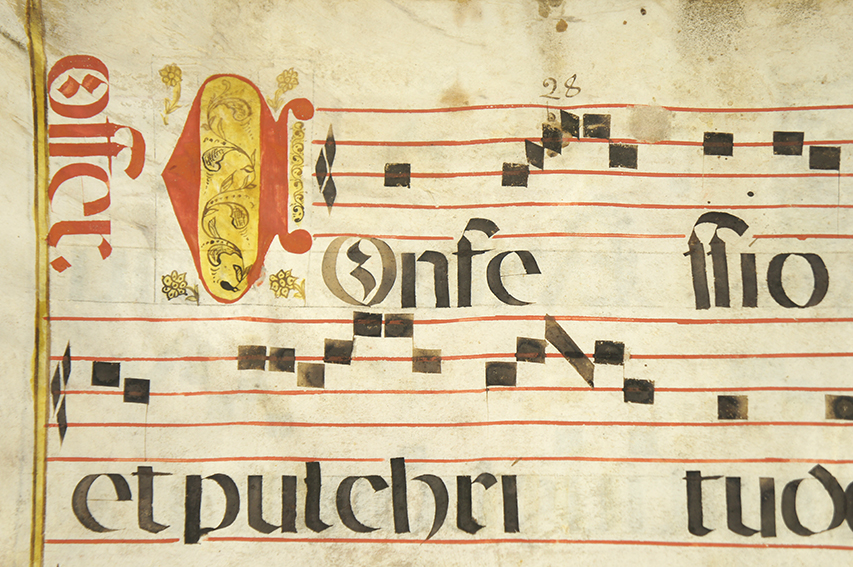 Offer.
28
COnfe ssio
et pulchri tudo